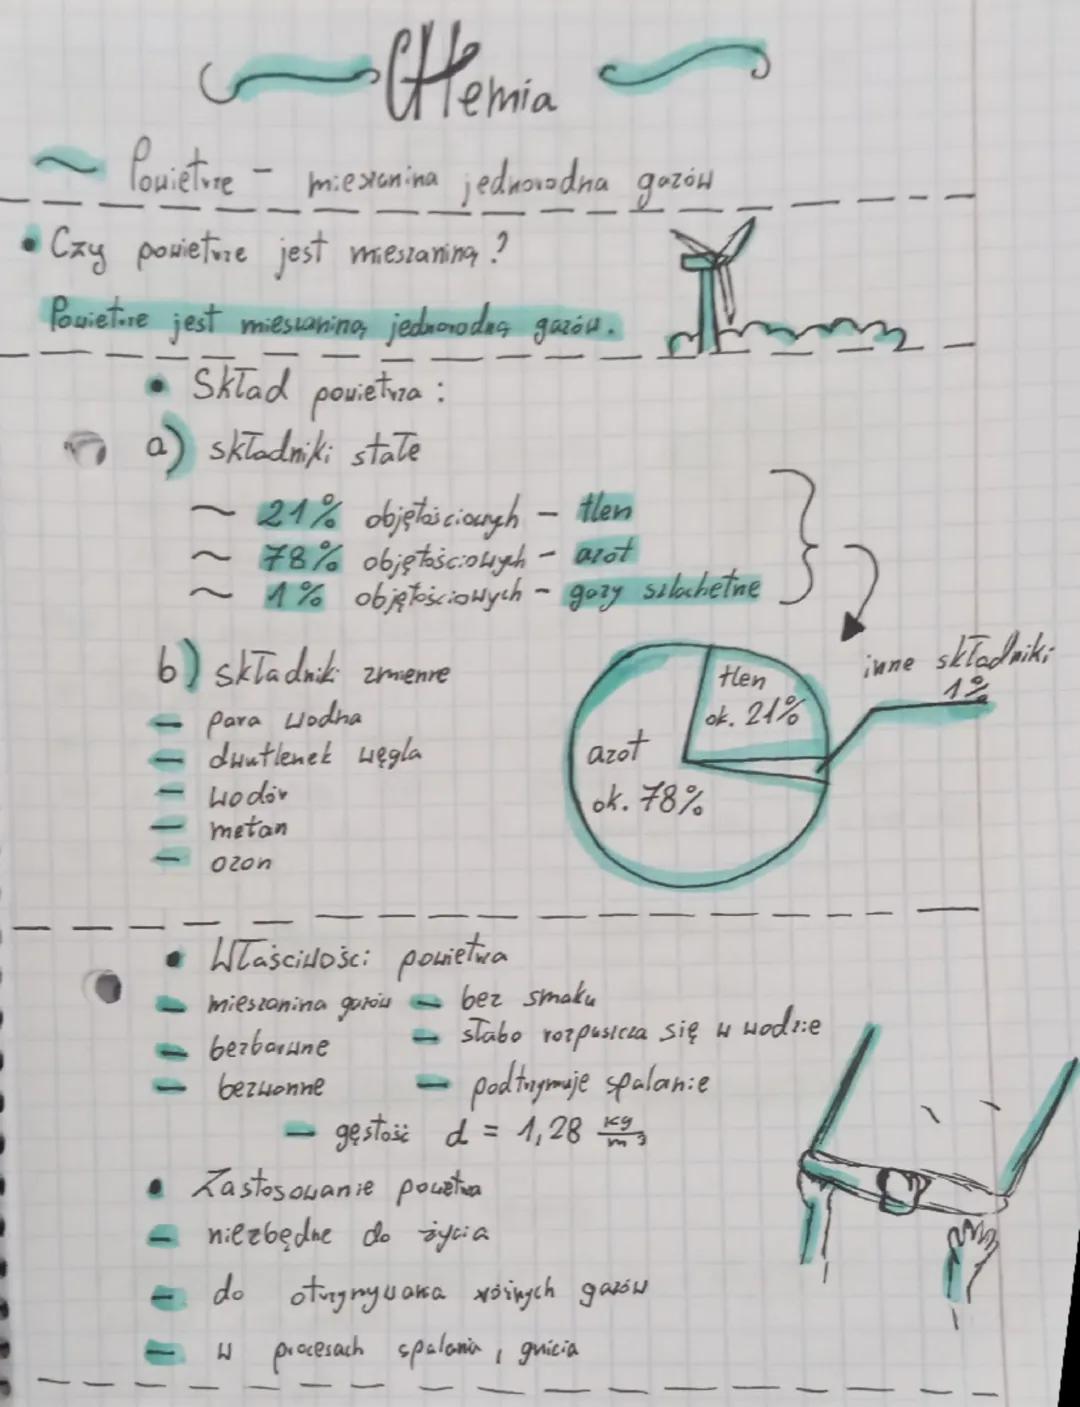 CHemia
Powietrze - mieszanina jednorodna gazów
Czy powietrze jest mieszaniną?
Powietrze jest mieszaniną jednorodną gazów.
Skład powietrza:
a) składniki stałe
~ 21% objętościowych - tlen
~ 78% objętościowych - azot
~ 1% objętościowych - gazy szlachetne
b) składniki zmienne
- para wodna
- dwutlenek węgla
- wodór
- metan
- ozon
inne składniki
1%
tlen
ok. 21%
azot
ok. 78%
Właściwości powietrza
- mieszanina gazów - bez smaku
- bezbarwne - słabo rozpuszcza się w wodzie
- bezwonne - podtrzymuje spalanie
- gęstość d = 1,28 kg/m³
Zastosowanie powietrza
- niezbędne do życia
- do otrzymywania różnych gazów
- w procesach spalania, gnicia